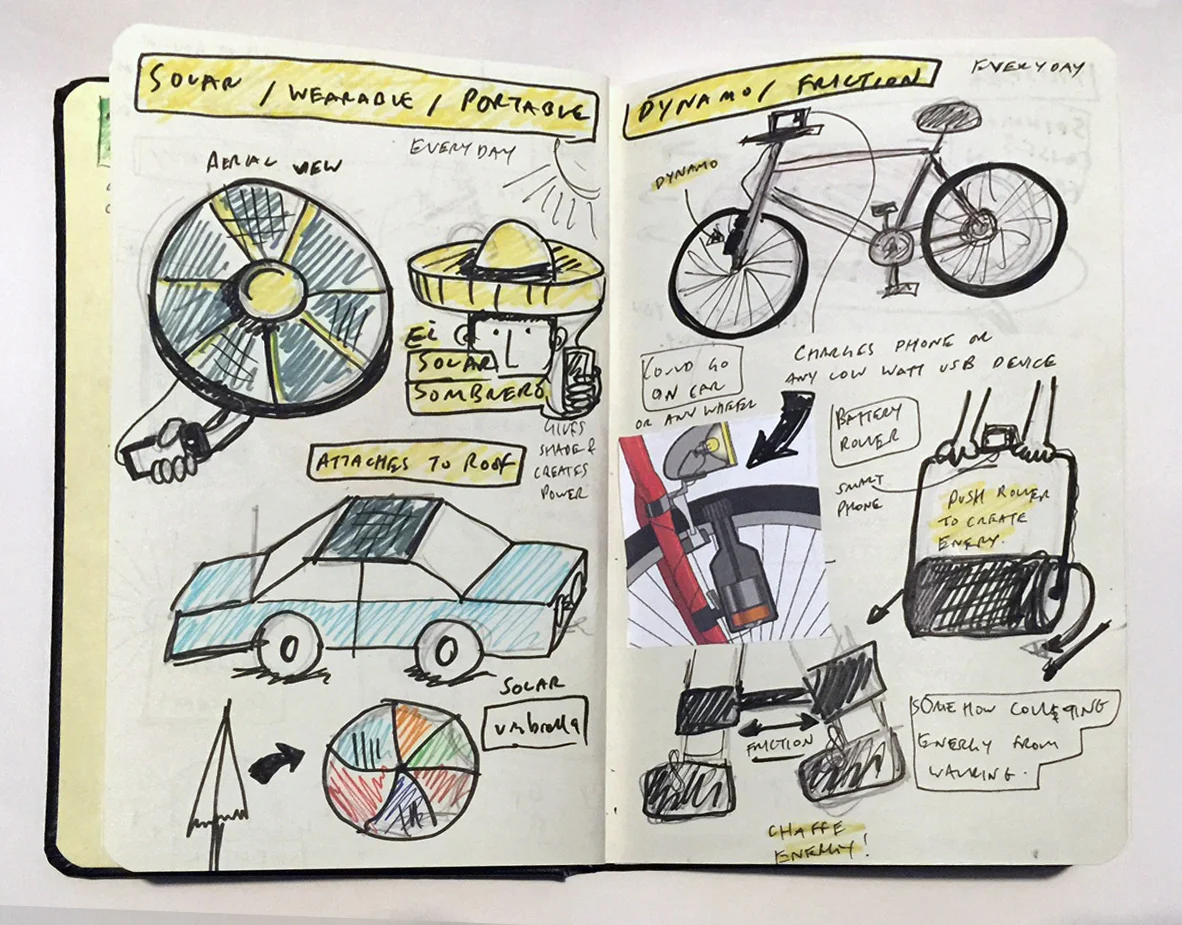 SOLAR / WEARABLE / PORTABLE
EVERYDAY
AERIAL VIEW
El
SOLAR
SOMBRERO
GIVES
SHADE &
CREATES
POWER
ATTACHES TO ROOF
SOLAR
umbrella
DYNAMO / FRICTION
EVERYDAY
DYNAMO
COULD GO
ON CAR
OR ANY WHEEL
CHARGES PHONE OR
ANY LOW WATT USB DEVICE
BATTERY
ROLLER
SMART
PHONE
PUSH ROLLER
TO CREATE
ENERY.
FRICTION
SOMEHOW COLLECTING
ENERGY FROM
WALKING.
CHAFFE
ENERGY!